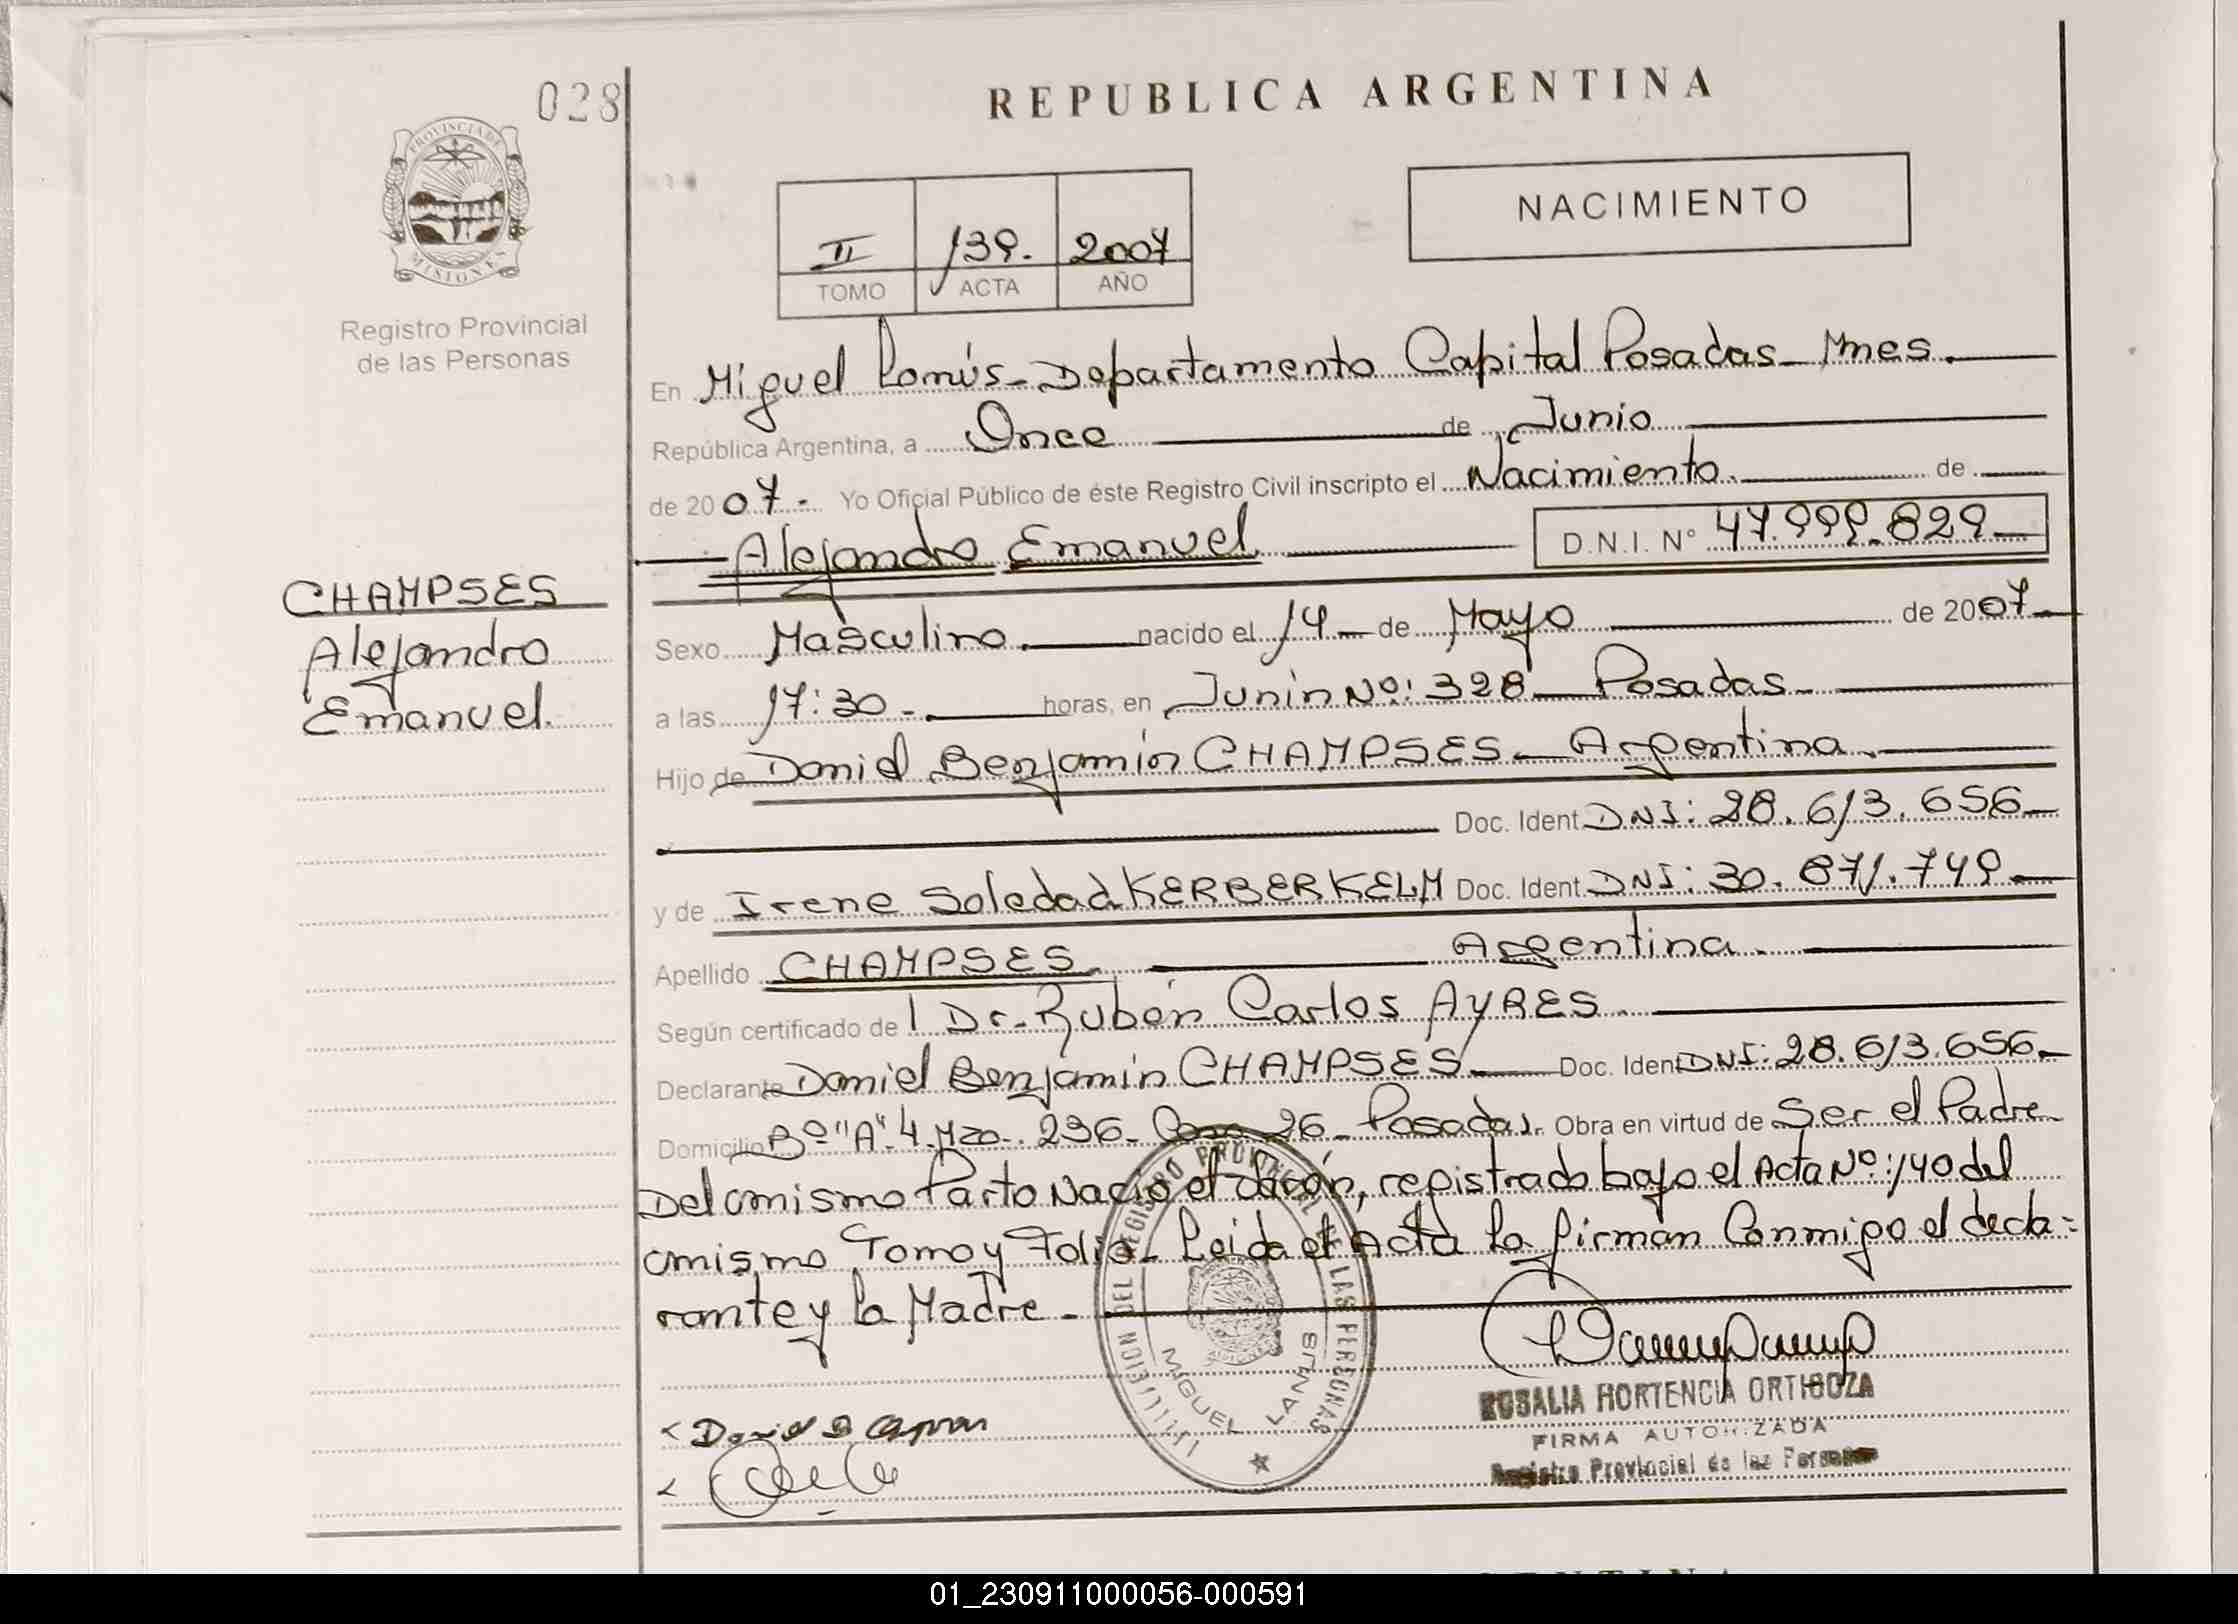 028
REPUBLICA ARGENTINA
PROVINCIA DE
MISIONES
Registro Provincial
de las Personas
NACIMIENTO
II 139. 2007
TOMO ACTA AÑO
En Miguel Lanús - Departamento Capital Posadas - Mnes.
República Argentina, a Once de Junio
de 2007.- Yo Oficial Público de éste Registro Civil inscripto el Nacimiento. de
Alejandro Emanuel D.N.I. N° 47.999.829
CHAMPSES
Alejandro
Emanuel.
Sexo Masculino. nacido el 14 de Mayo de 2007
a las 17:30 - horas, en Junín Nº: 328 - Posadas
Hijo de Daniel Benjamín CHAMPSES - Argentina.
Doc. Ident. DNI: 28.613.656
y de Irene Soledad KERBERKELM Doc. Ident. DNI: 30.871.749
Apellido CHAMPSES Argentina.
Según certificado de Dr. Rubén Carlos AYRES.
Declarante Daniel Benjamín CHAMPSES Doc. Ident DNI: 28.613.656
Domicilio Bº "A" 4. Mza. 236 - Casa 26 - Posadas. Obra en virtud de Ser el Padre
Del mismo Parto Nació el Varón, registrado bajo el Acta Nº: 140 del
mismo Tomo y Folio - Leida el Acta la firman Conmigo el decla=
rante y la Madre -
DEL REGISTRO PROVINCIAL DE LAS PERSONAS
MIGUEL LANUS
ROSALIA HORTENCIA ORTIGOZA
FIRMA AUTORIZADA
Registro Provincial de las Personas
01_230911000056-000591